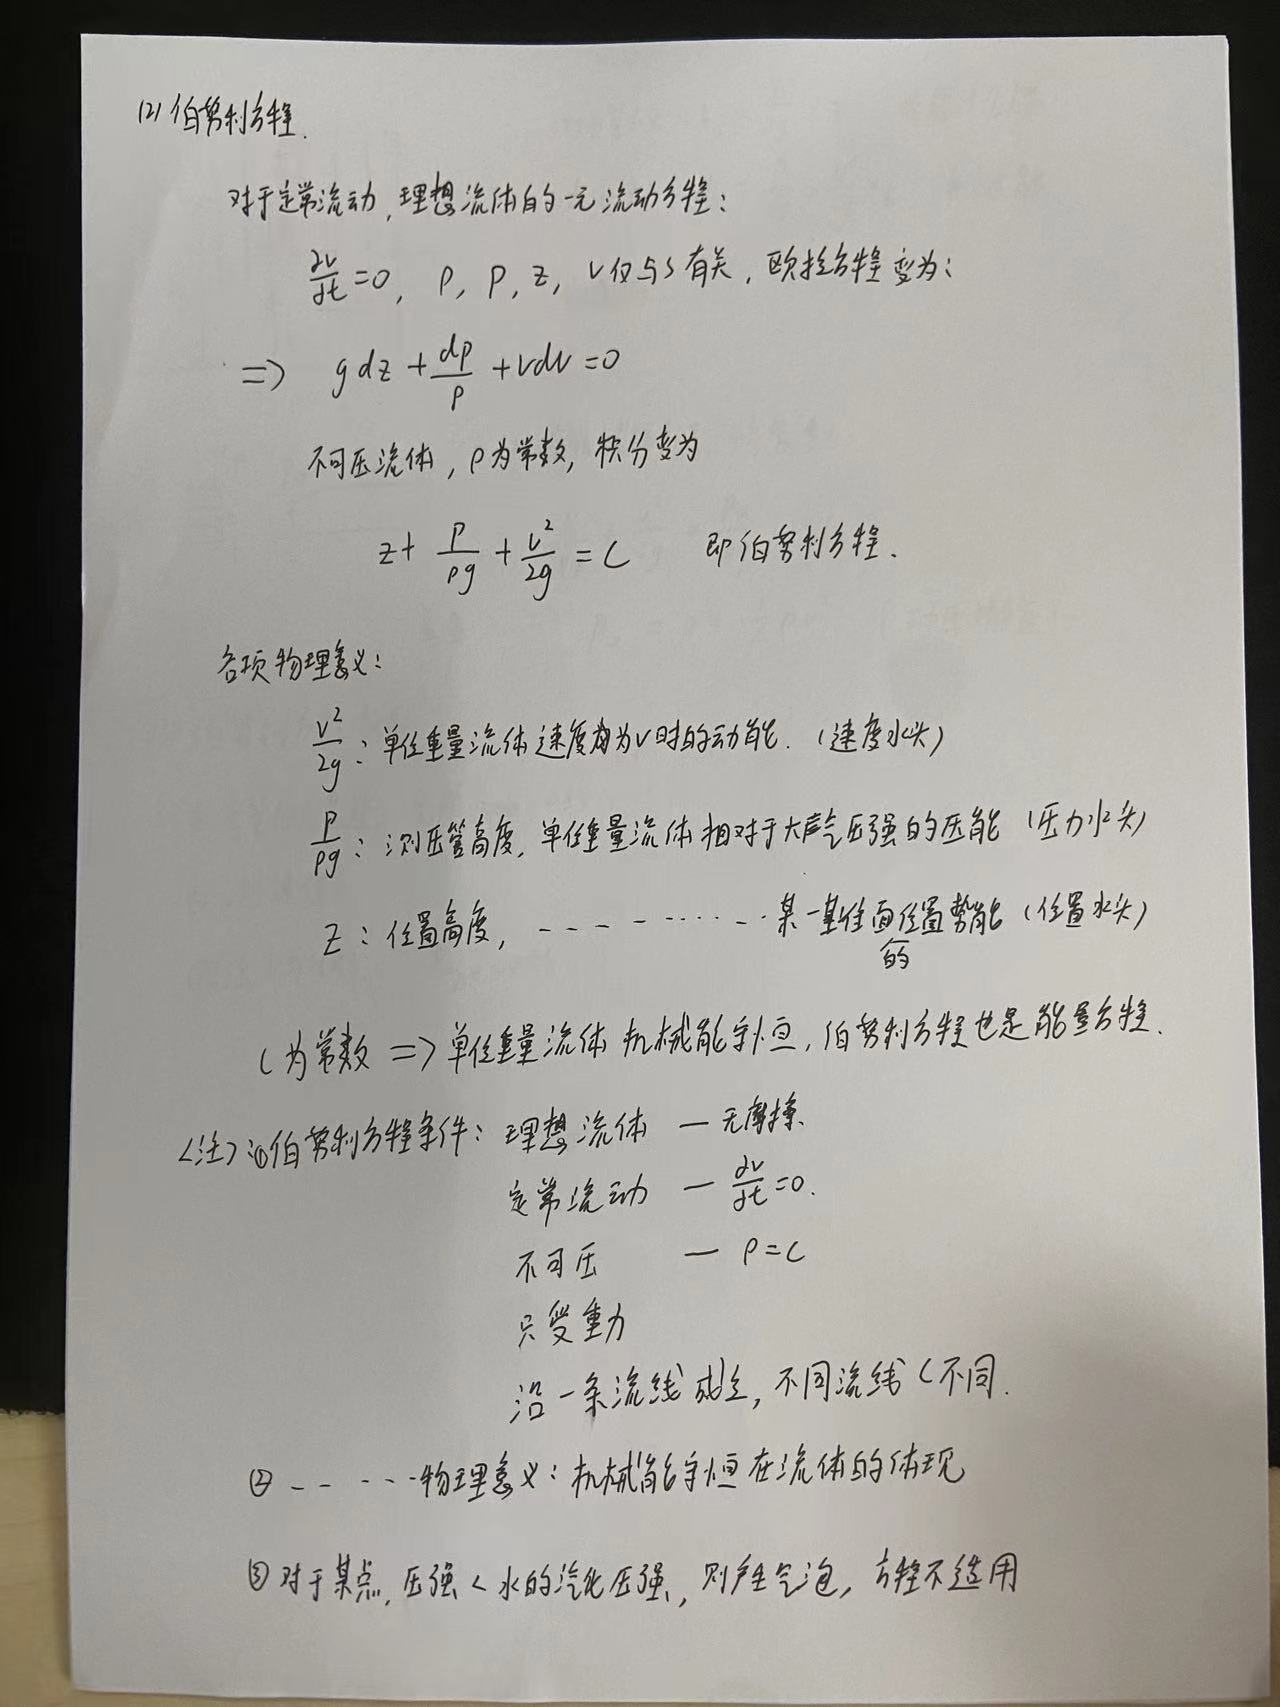 (2) 伯努利方程.
对于定常流动,理想流体的一元流动方程:
∂v/∂t=0, ρ, p, z, v仅与s有关,欧拉方程变为:
⇒ gdz+dp/ρ+vdv=0
不可压流体,ρ为常数,积分变为
z+p/ρg+v²/2g=C 即伯努利方程.
各项物理意义:
v²/2g:单位重量流体速度为v时的动能.(速度水头)
p/ρg:测压管高度,单位重量流体相对于大气压强的压能(压力水头)
z:位置高度,---·······某一基准面的位置势能(位置水头)
C为常数⇒单位重量流体机械能守恒,伯努利方程也是能量方程.
<注>:①伯努利方程条件:理想流体 — 无摩擦.
定常流动 — ∂v/∂t=0.
不可压 — ρ=C
只受重力
沿一条流线成立,不同流线C不同.
②-- ····物理意义:机械能守恒在流体的体现
③对于某点,压强<水的汽化压强,则产生气泡,方程不适用